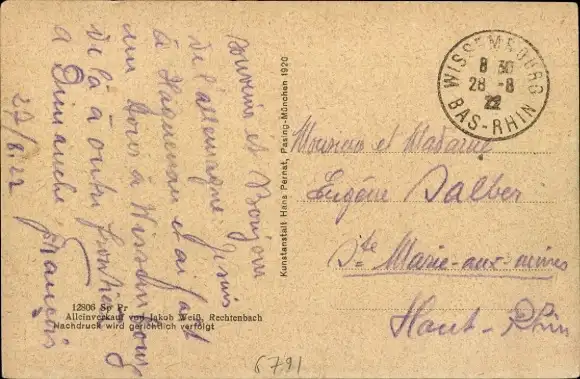 Souvenir et Bonjour
de l'allemagne. Je suis
à Haguenau et ai fait
un tour à Wissembourg
de là à outre frontière
a Dimanche François
27/8.22
12806 Sp Pr
Alleinverkauf von Jakob Weiß, Rechtenbach
Nachdruck wird gerichtlich verfolgt
Kunstanstalt Hans Pernat, Pasing-München 1920
WISSEMBOURG
8 30
28 -8
22
BAS-RHIN
Monsieur et Madame
Eugène Dalber
Ste Marie-aux-mines
Haut-Rhin
6791